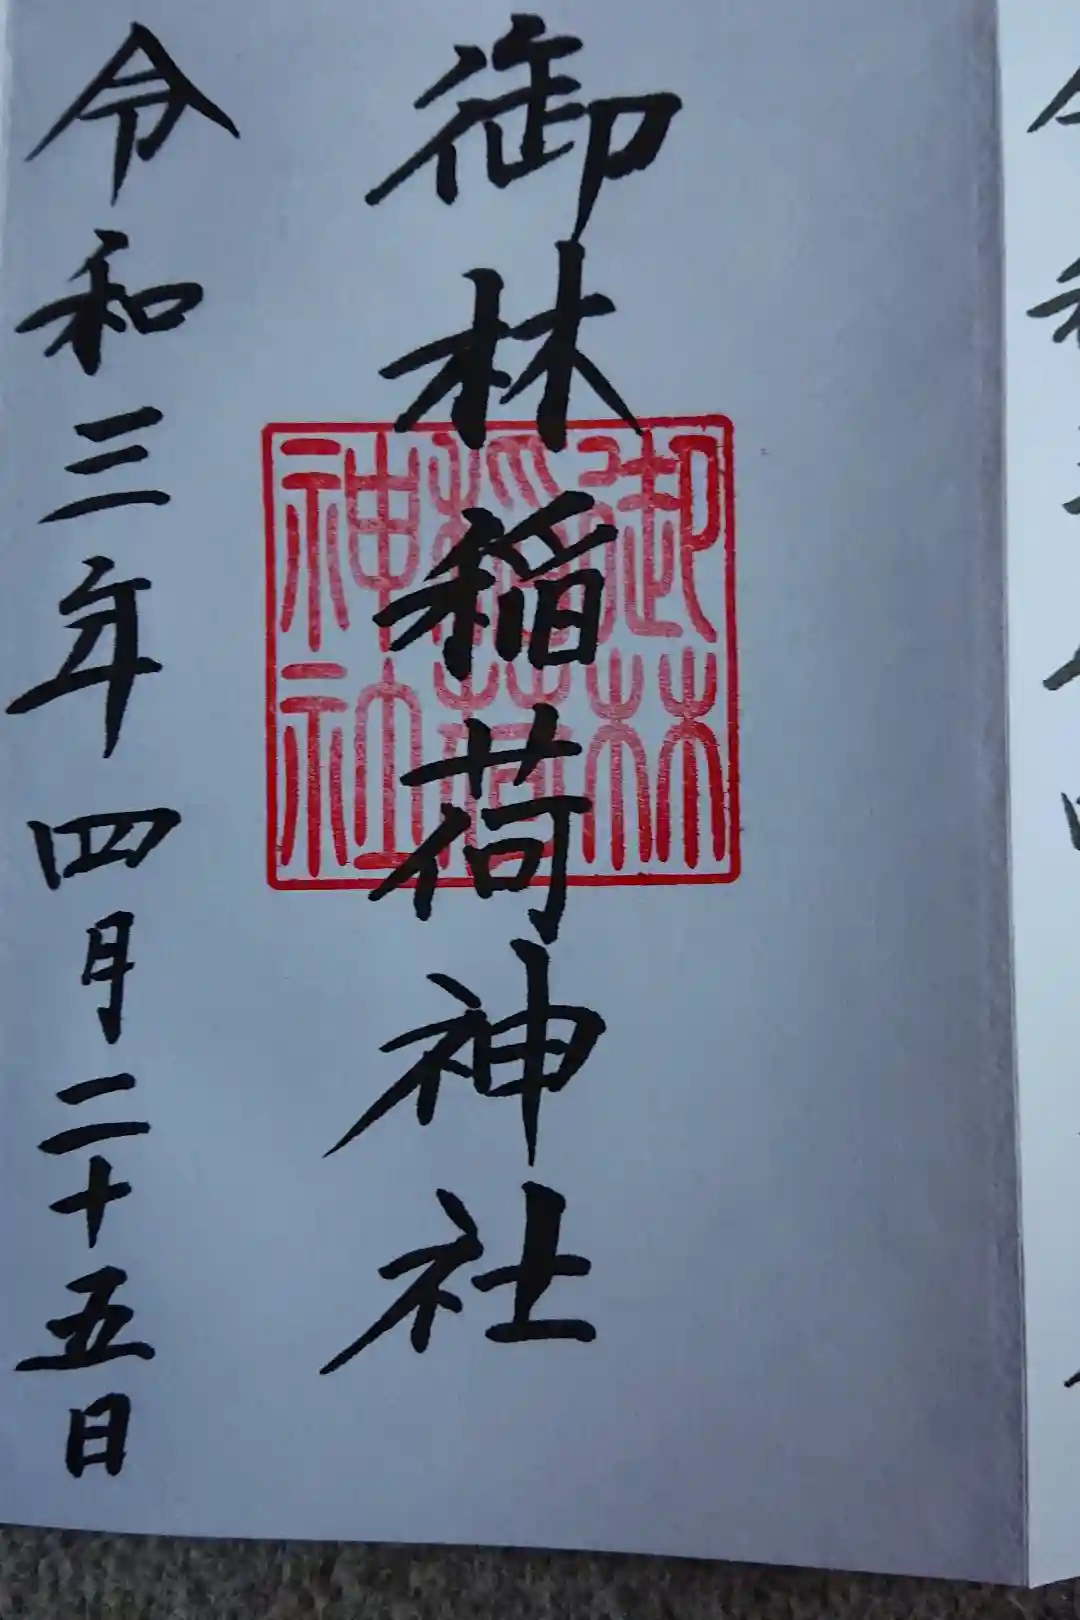 御林稲荷神社
御林稲荷神社
令和三年四月二十五日